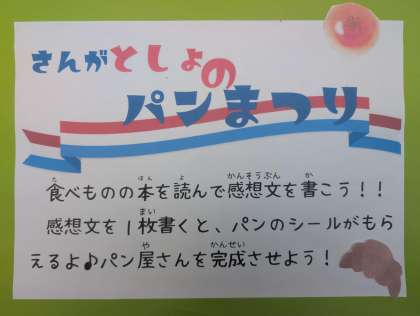 さんがとしょの
パンまつり
食べものの本を読んで感想文を書こう！！
感想文を1枚書くと、パンのシールがもら
えるよ♪パン屋さんを完成させよう！